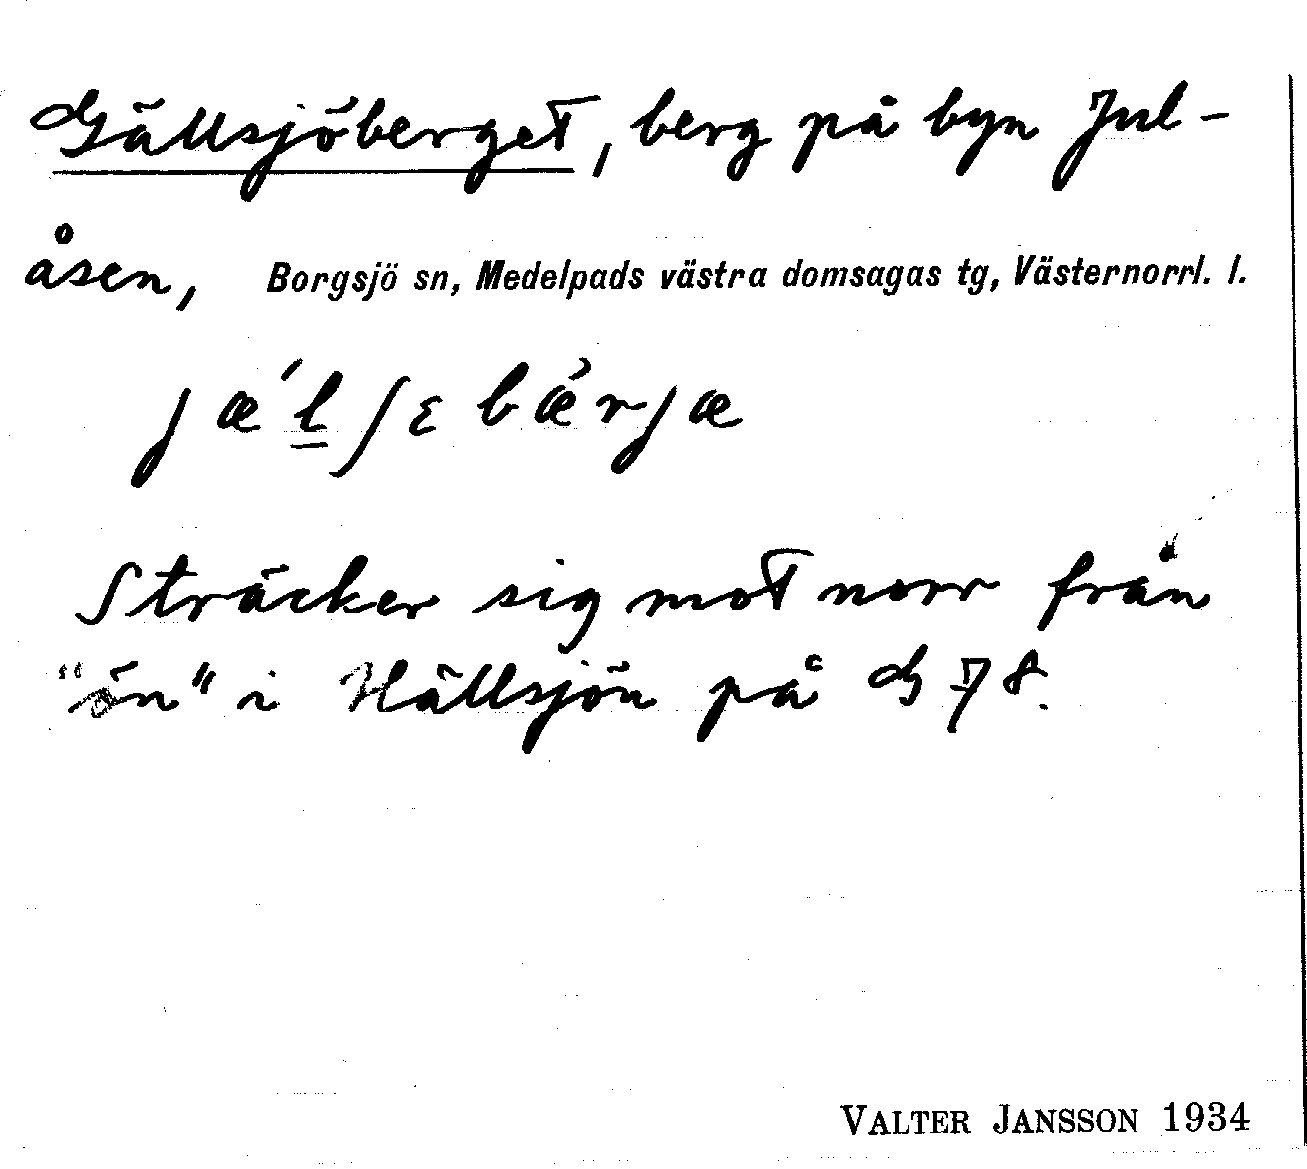 Gällsjöberget, berg på byn Jul-
åsen, Borgsjö sn, Medelpads västra domsagas tg, Västernorrl. l.
jæ´l̲ ʃɛ bæ̀rjæ
Sträcker sig mot norr från
"ön" i Hällsjön på G 78.
VALTER JANSSON 1934